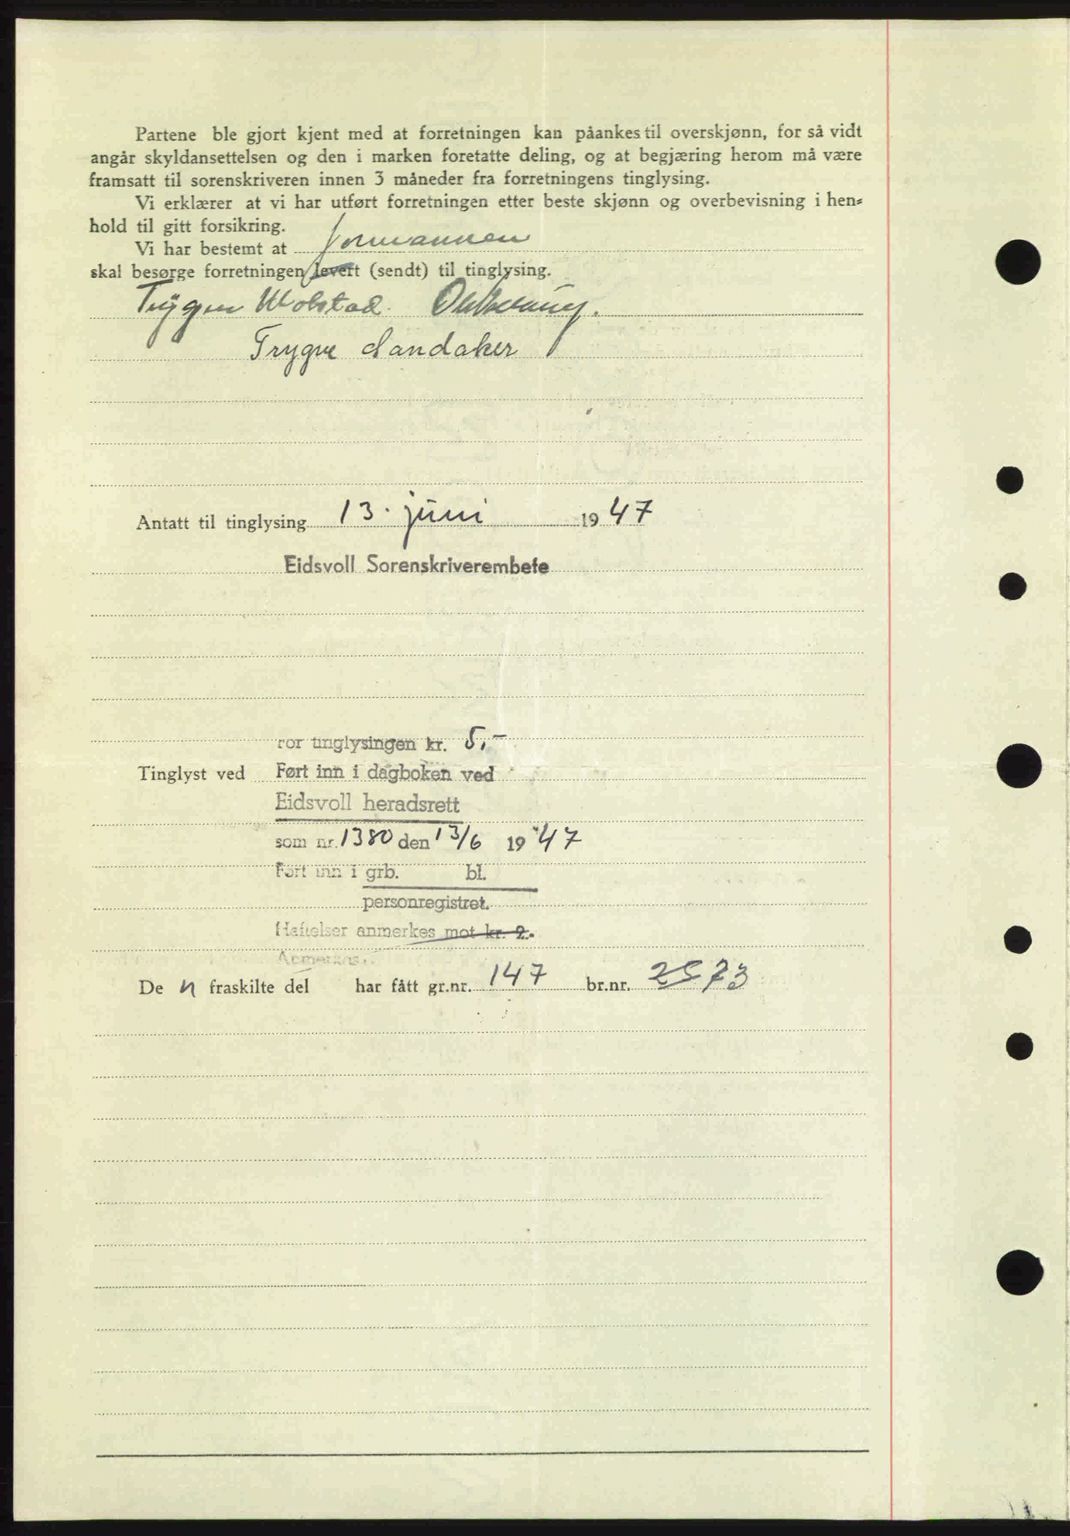 Partene ble gjort kjent med at forretningen kan påankes til overskjønn, for så vidt
angår skyldansettelsen og den i marken foretatte deling, og at begjæring herom må være
framsatt til sorenskriveren innen 3 måneder fra forretningens tinglysing.
Vi erklærer at vi har utført forretningen etter beste skjønn og overbevisning i hen-
hold til gitt forsikring.
Vi har bestemt at formannen
skal besørge forretningen levert (sendt) til tinglysing.
Trygve
Trygve Sandaker
Antatt til tinglysing 13. juni 1947
Eidsvoll Sorenskriverembete
For tinglysingen kr. 5,-
Tinglyst ved Ført inn i dagboken ved
Eidsvoll heradsrett
som nr. 1380 den 13/6 1947
Ført inn i grb. bl.
personregistret.
Heftelser anmerkes mot kr. 2.-
De n fraskilte del har fått gr.nr. 147 br.nr. 73